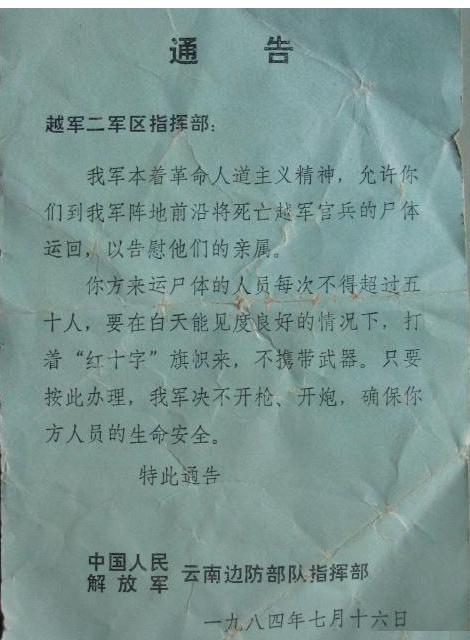 通 告
越军二军区指挥部：
我军本着革命人道主义精神，允许你
们到我军阵地前沿将死亡越军官兵的尸体
运回，以告慰他们的亲属。
你方来运尸体的人员每次不得超过五
十人，要在白天能见度良好的情况下，打
着“红十字”旗帜来，不携带武器。只要
按此办理，我军决不开枪、开炮，确保你
方人员的生命安全。
特此通告
中国人民
解放军 云南边防部队指挥部
一九八四年七月十六日